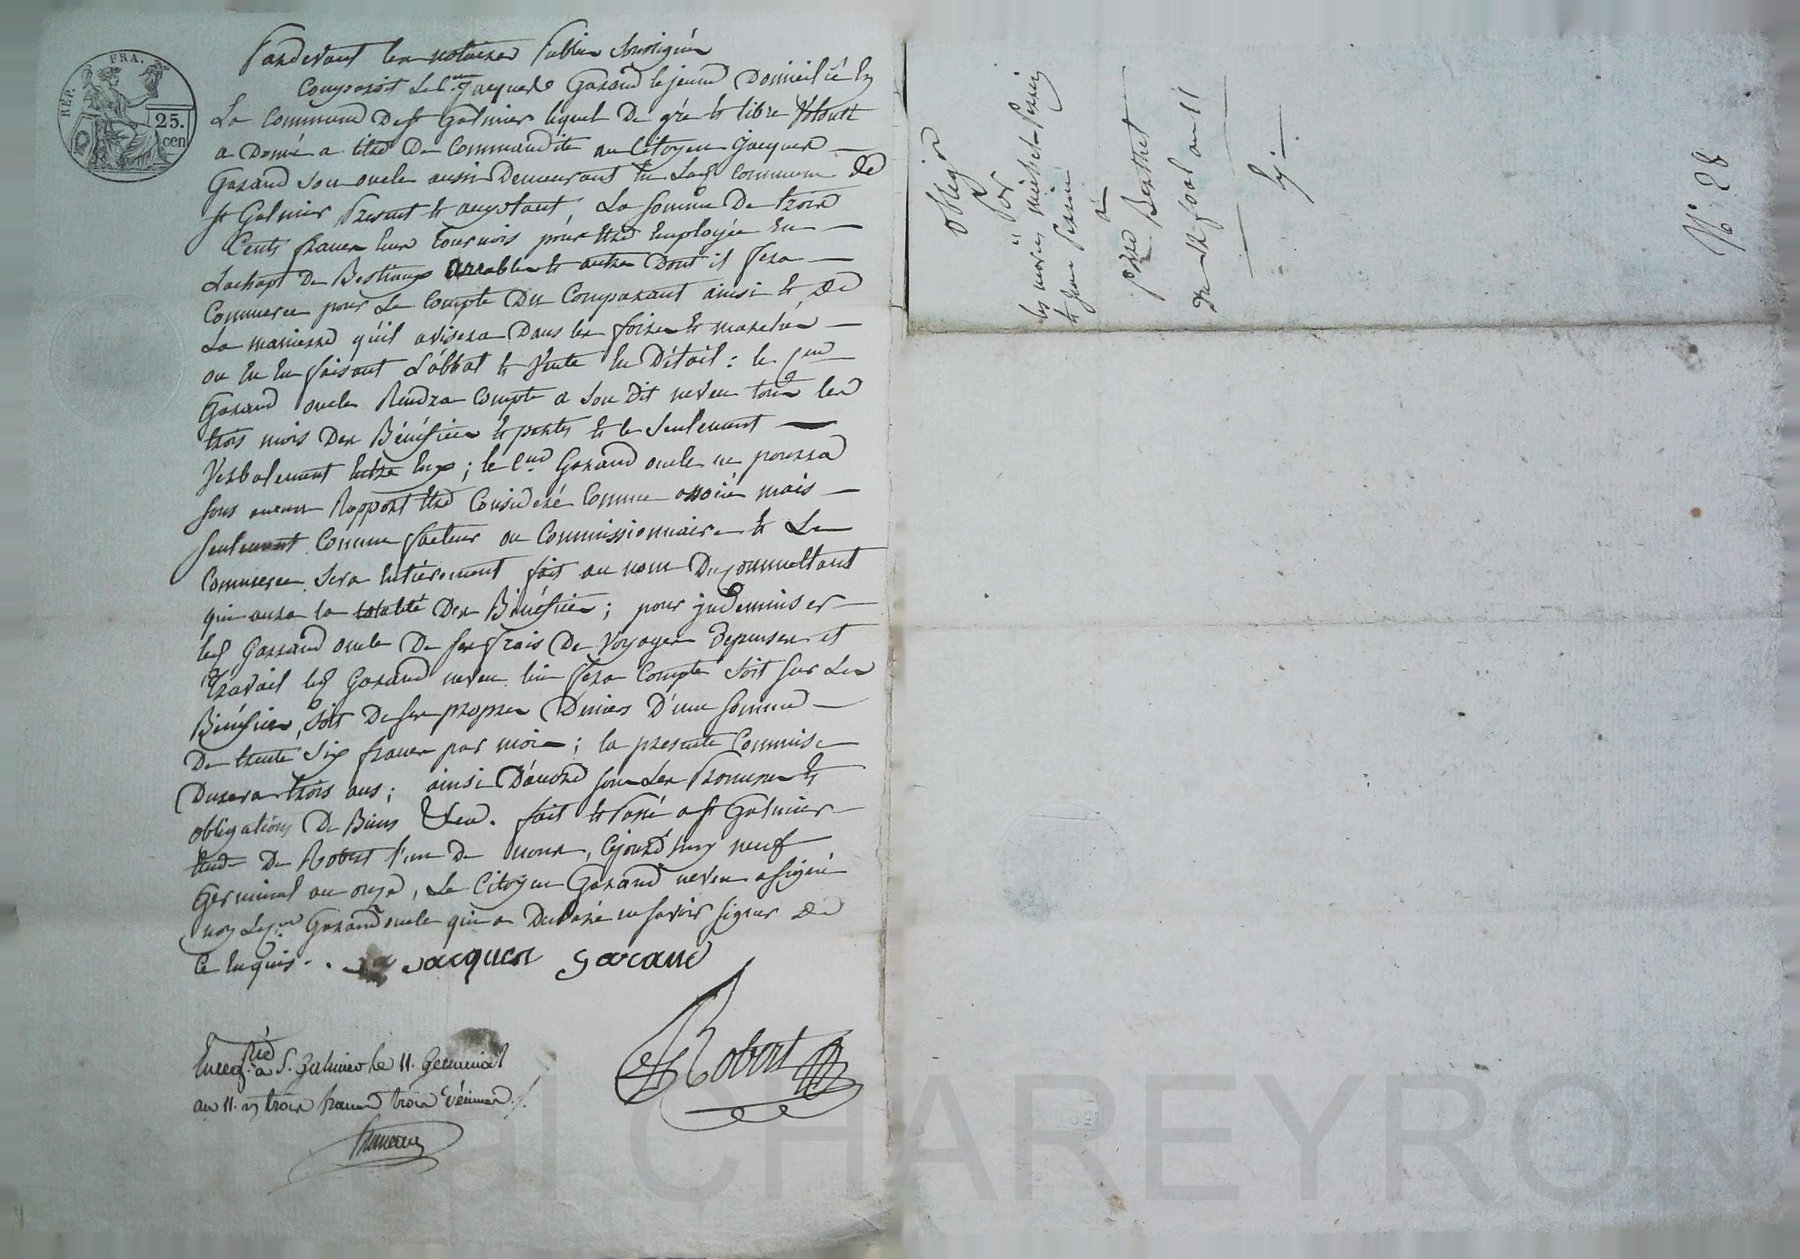 REP. FRA.
25.
cen
Pardevant les notaires Publics soussignés
Comparoit le Cen Jacques Garand le jeune Domicilié En
La Commune De st Galmier lequel De gré et libre Volonté
a Donné a titre De Commandite au Citoyen Jacques
Garand son oncle aussi Demeurant En lad Commune De
st Galmier Present et acceptant, La somme De trois
Cents francs tournois pour Etre Employée En
Lachapt De Bestiaux et autre Dont il fera
Commerce pour Le Compte Du Comparant ainsi et De
La maniere qu'il avisera Dans les foires et marchés
ou En En faisant L'abbat et Vente En Détail : le Cen
Garand oncle Rendra Compte a Son Dit neveu tous les
trois mois Des Bénéfices et pertes et ce Seulement
Verbalement Entre Eux ; le Cen Garand oncle ne pourra
sous aucun Rapport Etre Consideré Comme associé mais
seulement Comme facteur ou Commissionnaire et Le
Commerce Sera Entierement fait au nom Du Committant
qui aura la totalité Des Bénéfices ; pour indemniser
led Garand oncle De ses frais De Voyages Depenses et
travail led Garand neveu lui fera Compte soit sur Les
Bénéfices, soit De ses propres Deniers D'une somme
De trente Six francs par mois ; la presente Commise
Durera trois ans ; ainsi D'accord sous Les Promesses et
obligations De Biens &ca. fait et Passé a st Galmier
Etude De Robert l'un De nous, Cejourd'huy neuf
Germinal an onze, Le Citoyen Garand neveu a signé
non Le Cen Garand oncle qui a Declaré ne savoir signer De
Ce Enquis.
Jacques Garand
Robert
Enregtré a S. Galmier le 11. Germinal
an 11. R trois francs trois décimes
N°. 28
obligon
Por
les mariés michel Perrin
et jeanne Perrin
à
Pierre Berthet
Du 11 floréal an 11
CHAREYRON